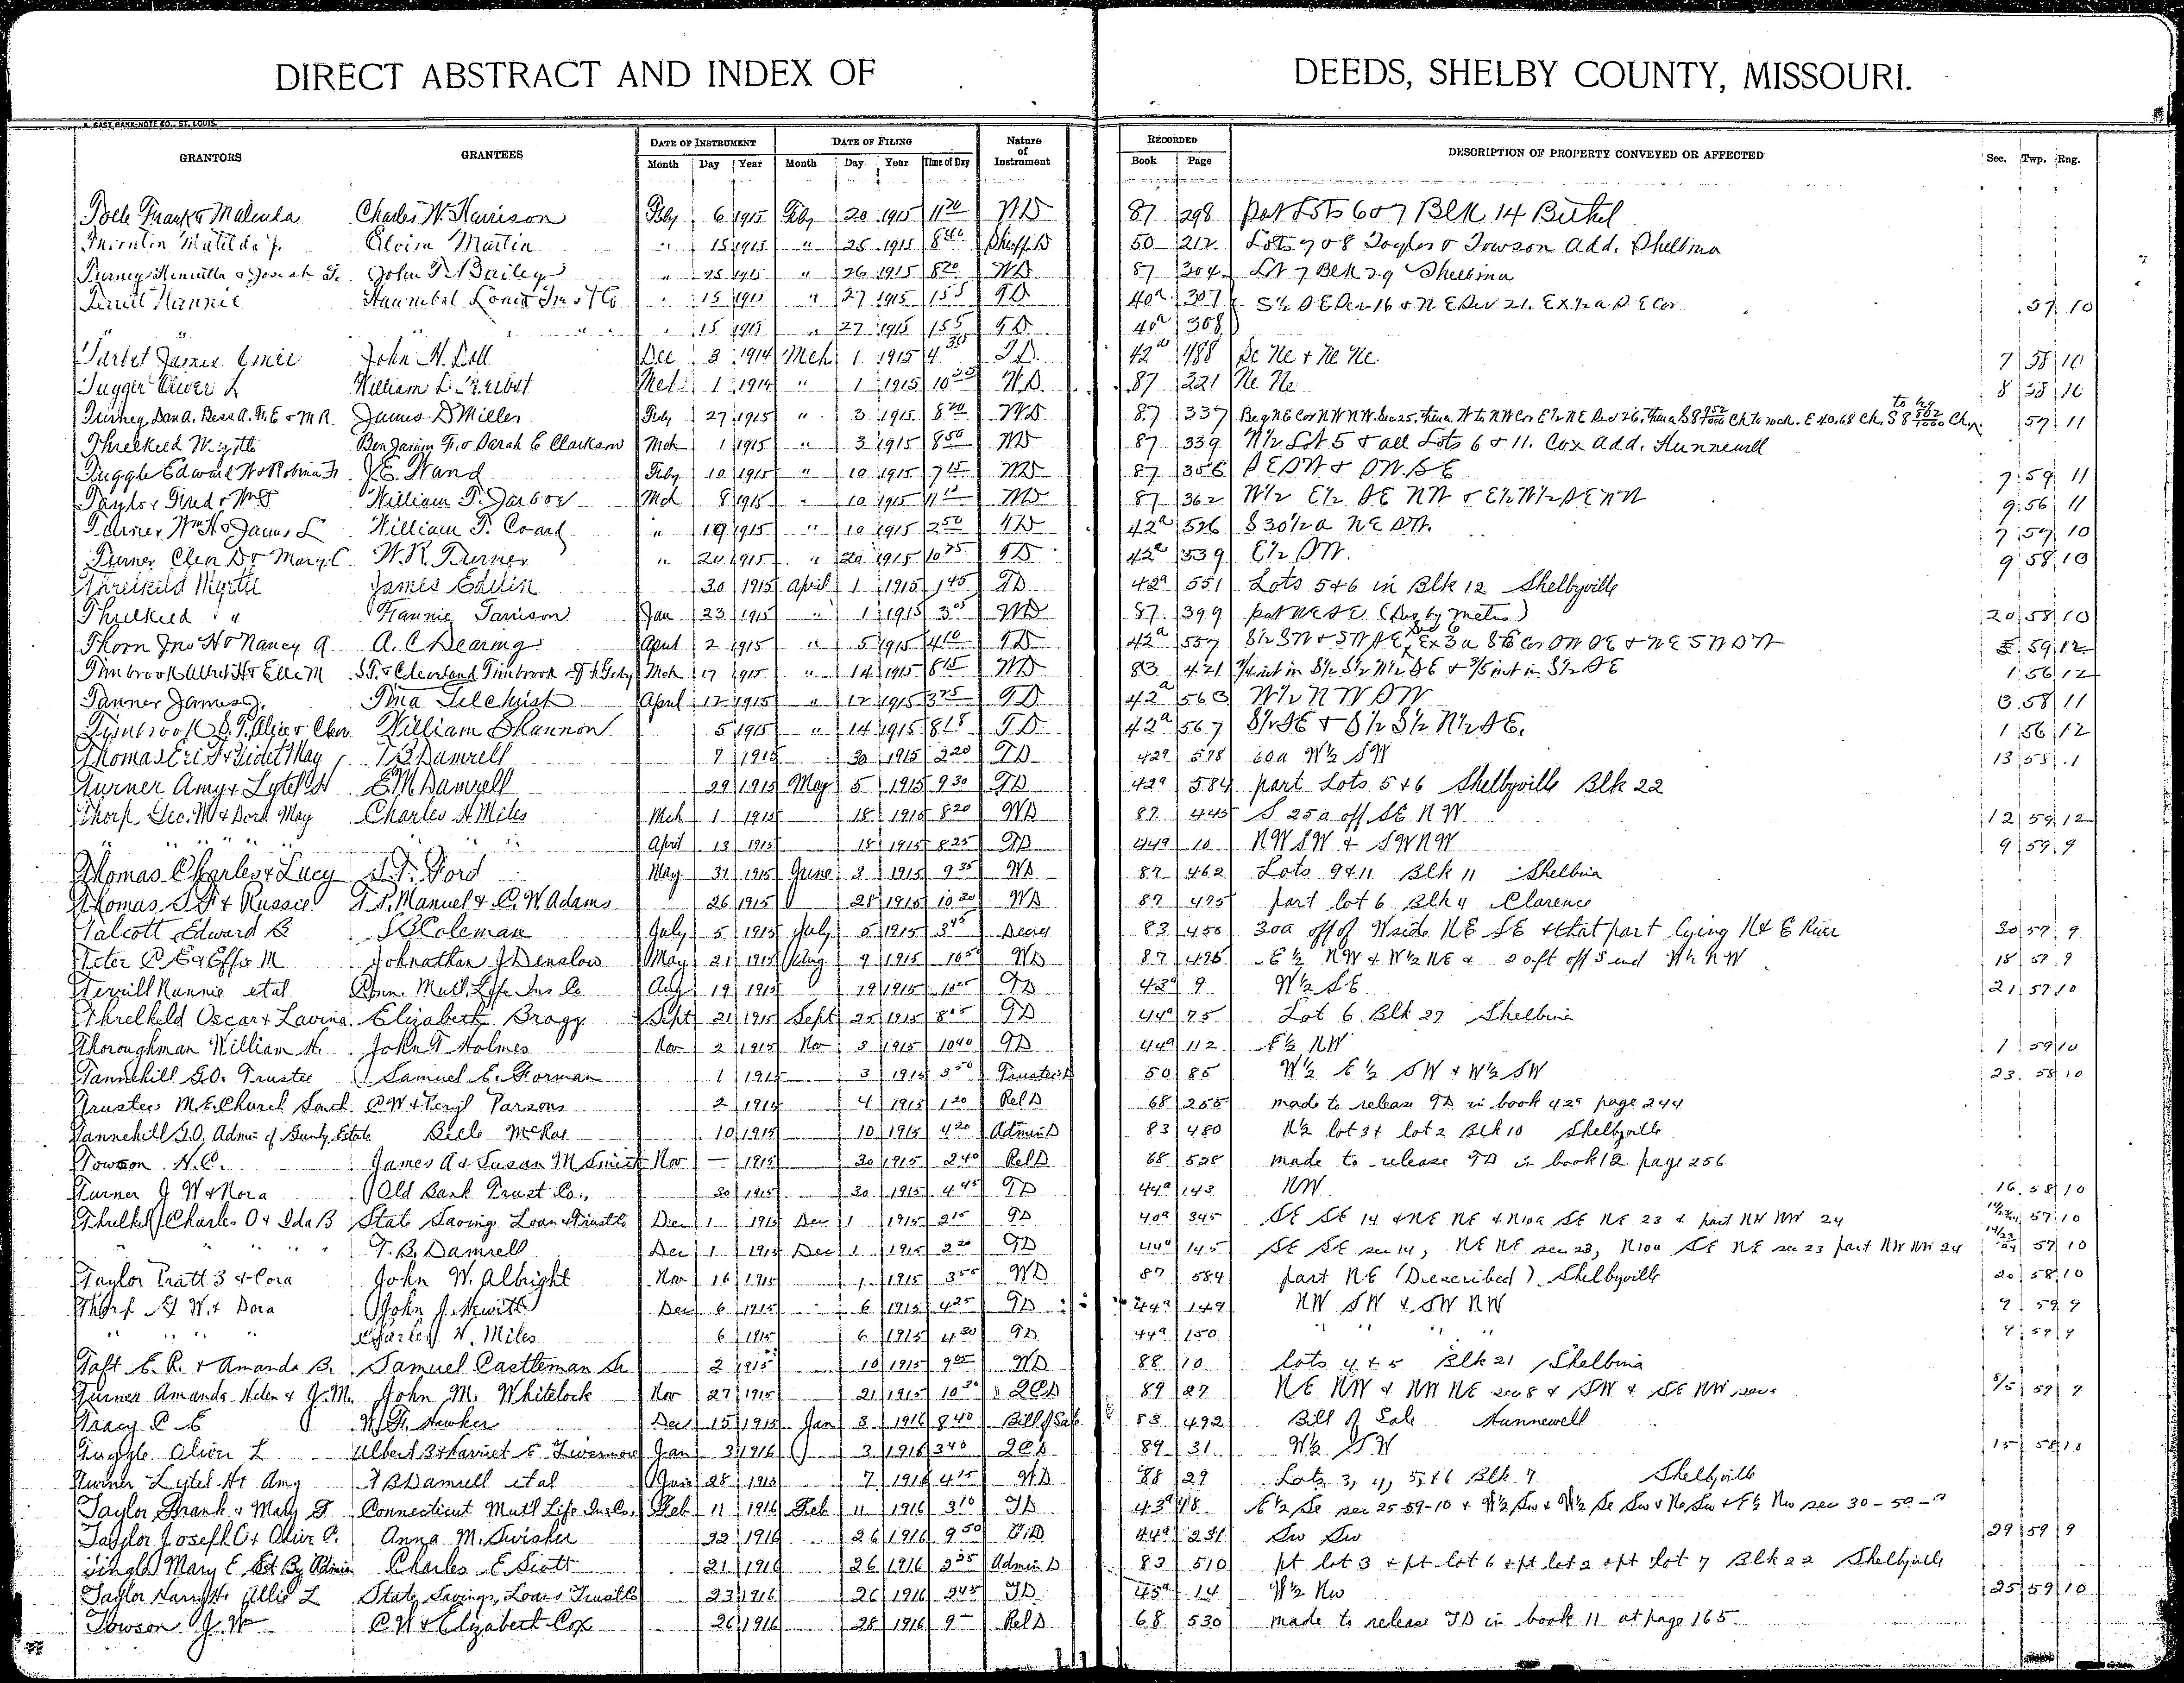 DIRECT ABSTRACT AND INDEX OF DEEDS, SHELBY COUNTY, MISSOURI.
GRANTORS GRANTEES DATE OF INSTRUMENT DATE OF FILING Nature of Instrument RECORDED DESCRIPTION OF PROPERTY CONVEYED OR AFFECTED Sec. Twp. Rng.
Month Day Year Month Day Year Time of Day Book Page
Frank & Malinda Charles W. Harrison Feby 6 1915 Feby 20 1915 11 20 WD 87 298 Part Lots 6 & 7 Blk 14 Bethel
Matilda J. Elvira Martin " 15 1915 " 25 1915 Sheff D 50 212 Lots 7 & 8 Taylor & Towson Add. Shelbina
John T. Bailey " 25 1915 " 26 1915 8 20 WD 87 304 Lot 7 Blk 29 Shelbina
Terrill Nannie Hannibal " 15 1915 " 27 1915 1 55 TD 40a 307 57 10
" " " 15 1915 " 27 1915 1 55 TD 40a 308
James John H. Dec 3 1914 Mch 1 1915 4 30 TD 42a 488 Se Ne & Ne Ne 7 58 10
Oliver L William D. Mch 1 1914 " 1 1915 WD 87 221 Ne Ne 8 58 10
Turney Dan A. Bess A. T.E & M R James D Miller Feby 27 1915 " 3 1915 WD 87 337 57 11
Threlkeld Myrtle Benjamin F. & Sarah E Clarkson Mch 1 1915 " 3 1915 8 50 WD 87 339 N½ Lot 5 & all Lots 6 & 11. Cox Add. Hunnewell
Tuggle Edward W & Robina J. J.E. Hand Feby 10 1915 " 10 1915 7 15 WD 87 356 SE SW & SW SE 7 59 11
Taylor Fred & Wm William T. Mch 8 1915 " 10 1915 WD 87 362 W½ E½ SE NW & E½ W½ SE NW 9 56 11
Turner Wm H & James L William T. Coard " 19 1915 " 10 1915 2 50 TD 42a 526 S 30½ a NE SW. 7 57 10
Turner Clea D & Mary C W.R. Turner " 20 1915 " 20 1915 TD 42a 539 E½ SW. 9 58 10
Threlkeld Myrtle James Edelin 30 1915 April 1 1915 1 45 TD 42a 551 Lots 5 & 6 in Blk 12 Shelbyville
Threlkeld " Fannie Jan 23 1915 " 1 1915 3 05 WD 87 399 part NE SE 20 58 10
Thorn Jno H & Nancy A A. C Dearing April 2 1915 " 5 1915 4 10 TD 42a 557 59 12
Timbrook Albert H & Ella M Mch 17 1915 " 14 1915 8 15 WD 83 421 1 56 12
Tanner James J. Tina April 12 1915 " 12 1915 3 25 TD 42a 563 W½ NW SW 3 58 11
Timbrook William Shannon 5 1915 " 14 1915 8 15 TD 42a 567 S½ SE & S½ S½ N½ SE. 1 56 12
Thomas Eri F & Violet May T B Damrell 7 1915 30 1915 3 20 TD 42a 578 60a W½ SW 13 58
Turner Amy & Lytel H E M Damrell 29 1915 May 5 1915 9 30 TD 42a 584 part Lots 5 & 6 Shelbyville Blk 22
Thorp Geo. W & Dora May Charles H Miles Mch 1 1915 18 1915 8 20 WD 87 445 S. 25a off SE NW 12 59 12
" " " " " April 13 1915 18 1915 8 25 TD 44a 10 NW SW & SW NW 9 59 9
Thomas Charles & Lucy S. T. Ford May 31 1915 June 3 1915 9 35 WD 87 462 Lots 9 & 11 Blk 11 Shelbina
Thomas S F & Russie T. P. Manuel & C. W. Adams 26 1915 28 1915 10 20 WD 87 475 part lot 6 Blk 4 Clarence
Talcott Edward B S B Coleman July 5 1915 July 5 1915 3 45 83 450 30a off of W side NE SE & that part lying N & E River 30 57 9
Teter C E & Effie M Johnathan J Denslow May 21 1915 9 1915 10 50 WD 87 496 E½ NW & W½ NE & 20 ft off S end W½ NW 18 57 9
Terrill Nannie et al Conn. Mutl. Life Ins Co Aug 19 1915 19 1915 TD 43a 9 W½ SE 21 57 10
Threlkeld Oscar & Lavina Elizabeth Bragg Sept 21 1915 Sept 25 1915 8 05 TD 44a 75 Lot 6 Blk 27 Shelbina
Thoroughman William H. John T Holmes Nov 2 1915 Nov 3 1915 10 40 TD 44a 112 E½ NW 1 59 10
Tannehill G.O. Trustee Samuel E. Forman 1 1915 3 1915 3 50 Trustee D 50 85 W½ E½ SW & W½ SW 23 58 10
Trustees M.E. Church South C W & Beryl Parsons 2 1915 4 1915 1 20 Rel D 68 255 made to release TD in book 42a page 244
Tannehill G.O. Admin of Gundy Estate Belle McRae 10 1915 10 1915 4 20 Admin D 83 480 N½ lot 3 & lot 2 Blk 10 Shelbyville
Towson N.C. James A & Susan M Smith Nov — 1915 30 1915 2 40 Rel D 68 528 made to release TD in book 12 page 256
Turner J W & Nora Old Bank Trust Co., 30 1915 30 1915 4 45 TD 44a 143 NW 16 58 10
Threlkeld Charles O & Ida B State Savings Loan & Trust Co Dec 1 1915 Dec 1 1915 2 15 TD 40a 345 SE SE 14 & NE NE & N10a SE NE 23 & part NW NW 24 57 10
" " " " T. B. Damrell Dec 1 1915 Dec 1 1915 2 20 TD 44a 145 SE SE sec 14, NE NE sec 23, N10a SE NE sec 23 part NW NW 24 57 10
Taylor Pratt B & Cora John W. Albright Nov 16 1915 1 1915 3 50 WD 87 584 part NE (Described) Shelbyville 20 58 10
Thorp G W. & Dora John J. Hewitt Dec 6 1915 6 1915 4 25 TD 44a 149 NW SW & SW NW 9 59 9
" " " " Charles H. Miles 6 1915 6 1915 4 30 TD 44a 150 " " " " 9 59 9
Taft E. R. & Amanda B. Samuel Castleman Sr 2 1915 10 1915 9 05 WD 88 10 lots 4 & 5 Blk 21 Shelbina
Turner Amanda Helen & J.M. John M. Whitelock Nov 27 1915 21 1915 10 30 QCD 89 27 NE NW & NW NE sec 8 & SW & SE NW sec 8/5 59 9
Tracy C E W. T. Hawker Dec 15 1915 Jan 3 1916 8 40 Bill of Sale 83 492 Bill of Sale Hunnewell
Tuggle Oliver L Albert B & Harriet E Livermore Jan 3 1916 3 1916 3 40 QCD 89 31 W½ SW 15 58 10
Turner Lytel H & Amy T B Damrell et al 28 1915 7 1916 4 15 WD 88 29 Lots 3, 4, 5, & 6 Blk 7 Shelbyville
Taylor Frank & Mary F Connecticut Mutl Life Ins Co. Feb 11 1916 Feb 11 1916 3 10 TD 43a 48 E½ Se sec 25-59-10 & W½ Sw & W½ Se Sw & Ne Sw & E½ Nw sec 30-59-9
Taylor Joseph O & Olive P. Anna M. Swisher 22 1916 26 1916 9 50 44a 231 Sw Sw 29 59 9
Tingle Mary E Est By Admin Charles E Scott 21 1916 26 1916 2 35 Admin D 83 510 pt lot 3 & pt lot 6 & pt lot 2 & pt lot 7 Blk 22 Shelbyville
Taylor Harry H. Allie L State Savings, Loan & Trust Co 23 1916 26 1916 2 45 TD 45a 14 W½ Nw 25 59 10
Towson J. W C W & Elizabeth Cox 26 1916 28 1916 9 — Rel D 68 530 made to release TD in book 11 at page 165